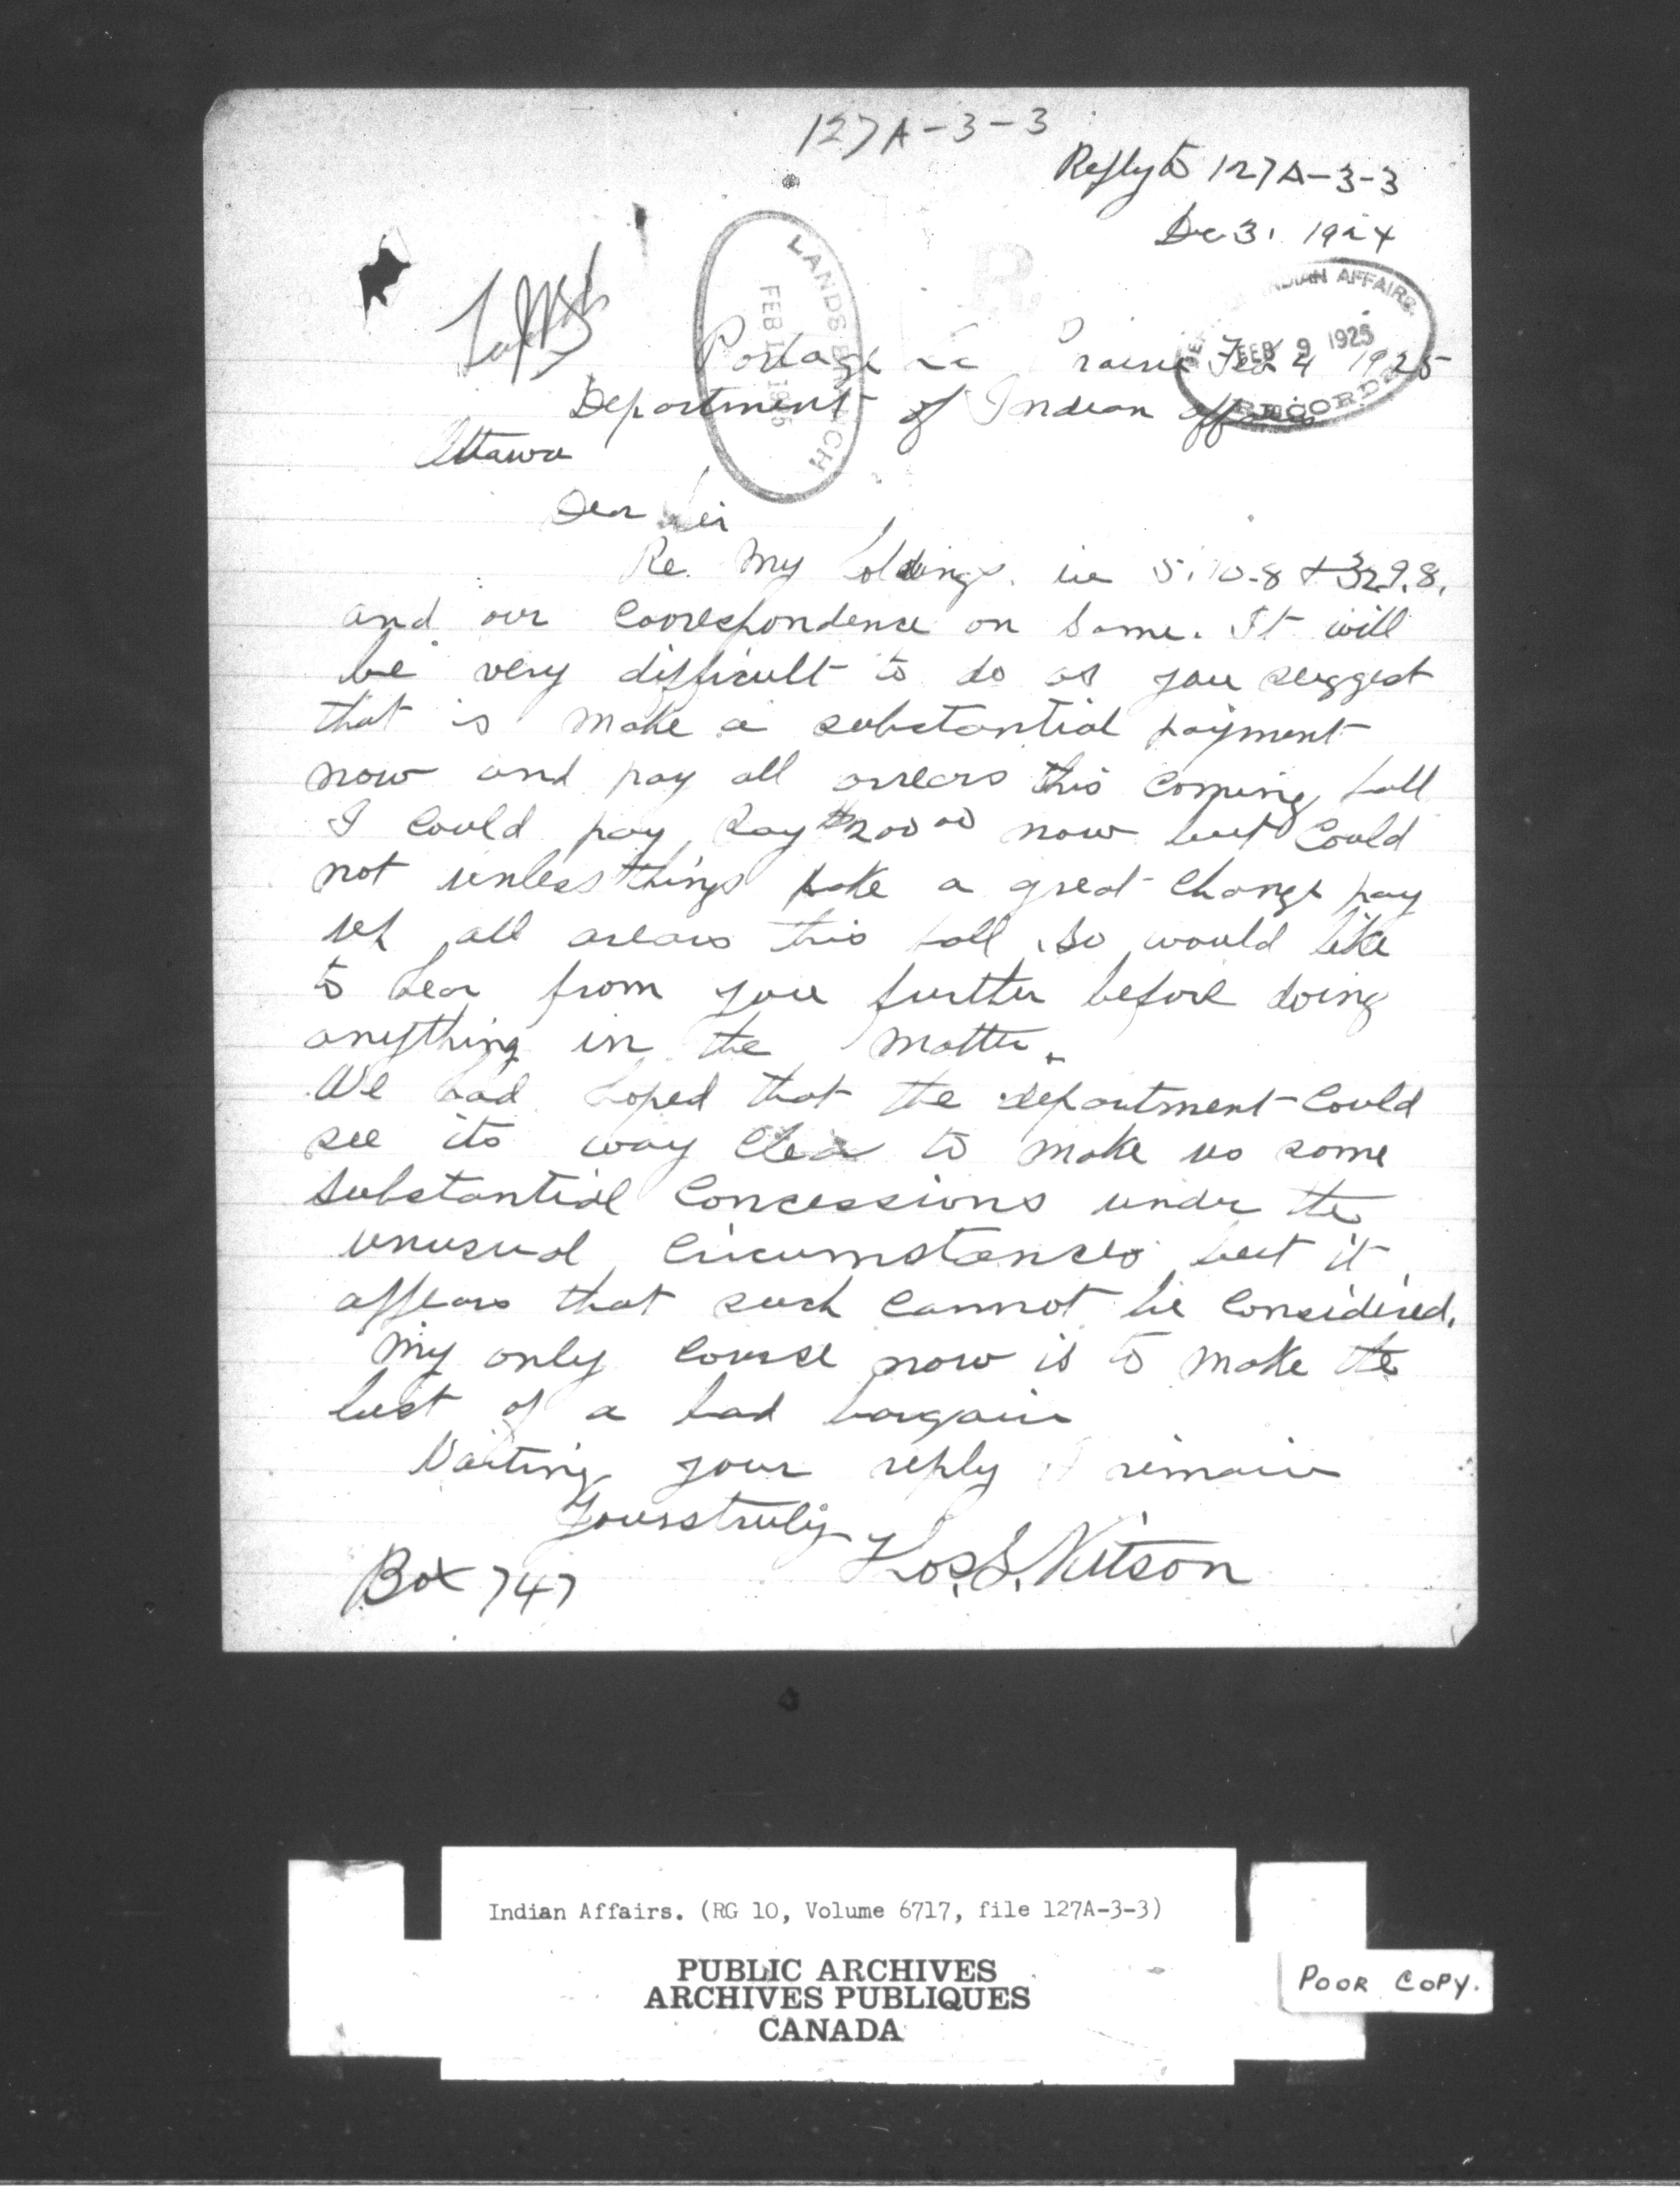 127A-3-3
Reply to 127A-3-3
Dec 31 1924
LANDS BRANCH
FEB 1925
INDIAN AFFAIRS
FEB 9 1925
RECORDS
Portage La Prairie Feb 4 1925
Department of Indian affairs
Ottawa
Dear Sir
Re. My holdings in 5.10.8 &
and our Coorespondence on same. It will
be very difficult to do as you suggest
that is make a substantial payment
now and pay all arrears this coming fall
I could pay say $200.00 now but could
not unless things take a great change pay
up all arears this fall so would like
to hear from you further before doing
anything in the matter.
We had hoped that the department could
see its way clear to make us some
substantial concessions under the
unusual circumstances but it
appears that such cannot be considered.
My only course now is to make the
best of a bad bargain
Waiting your reply I remain
Yours truly Thos. S. Kitson
Box 747
Indian Affairs. (RG 10, Volume 6717, file 127A-3-3)
PUBLIC ARCHIVES
ARCHIVES PUBLIQUES
CANADA
POOR COPY.